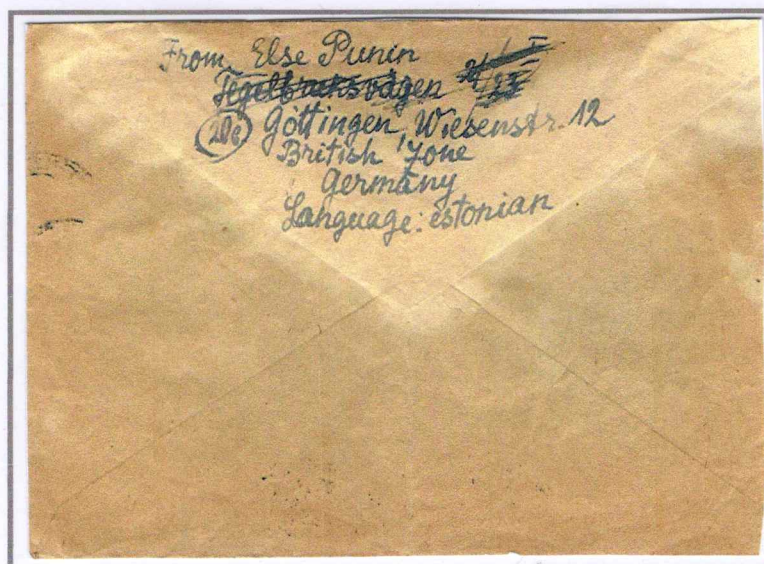 From Else Punin
Tegelbruksvägen
(20b) Göttingen, Wiesenstr. 12
British Zone
Germany
Language: estonian